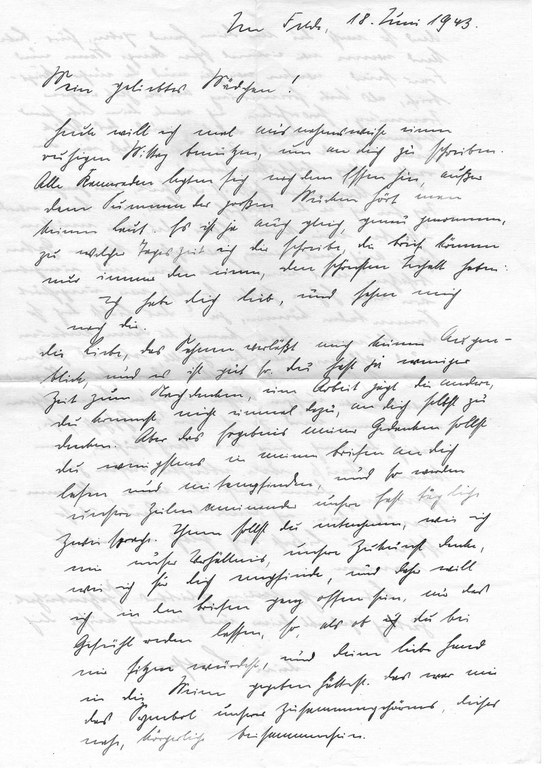 Im Felde, 18. Juni 1943.
Mein geliebtes Mädchen!
Heute will ich mal ausnahmsweise einen
ruhigen Mittag benutzen, um an dich zu schreiben.
Alle Kameraden legten sich nach dem Essen hin, außer
dem Summen der großen Mücken hört man
keinen Laut. Es ist ja auch gleich, genau genommen,
zu welcher Tageszeit ich dir schreibe, die Briefe können
nur immer den einen, den schönsten Inhalt haben:
Ich habe dich lieb, und sehne mich
nach dir.
Die Liebe, das Sehnen verläßt mich keinen Augen-
blick, und es ist gut so. Du hast ja weniger
Zeit zum Nachdenken, eine Arbeit jagt die andere,
du kommst nicht einmal dazu, an dich selbst zu
denken. Aber das Ergebnis meiner Gedanken sollst
du wenigstens in meinen Briefen an dich
lesen und mitempfinden, und so werden
unsere Zeilen aneinander unsere fast tägliche
Zwiesprache. Ihnen sollst du entnehmen, wie ich
an unser Verhältnis, unsere Zukunft denke,
wie ich für dich empfinde, und daher will
ich in den Briefen ganz offen sein, nur das
Gefühl reden lassen, so, als ob du bei
mir sitzen würdest, und deine liebe Hand
in die Meine gegeben hättest. Das war mir
das Symbol unserer Zusammengehörens, dieses
nahe, körperliche Beisammensein.